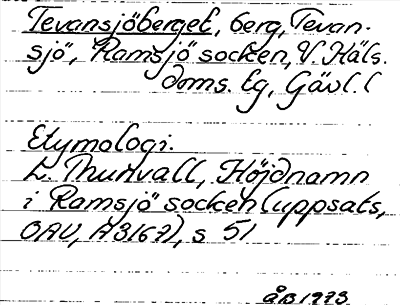 Tevansjöberget, berg, Tevan-
sjö, Ramsjö socken, V. Häls.
doms. tg, Gävl. l
Etymologi.
L. Thunvall, Höjdnamn
i Ramsjö socken (uppsats,
OAU, A3167), s 51
ÅB 1973